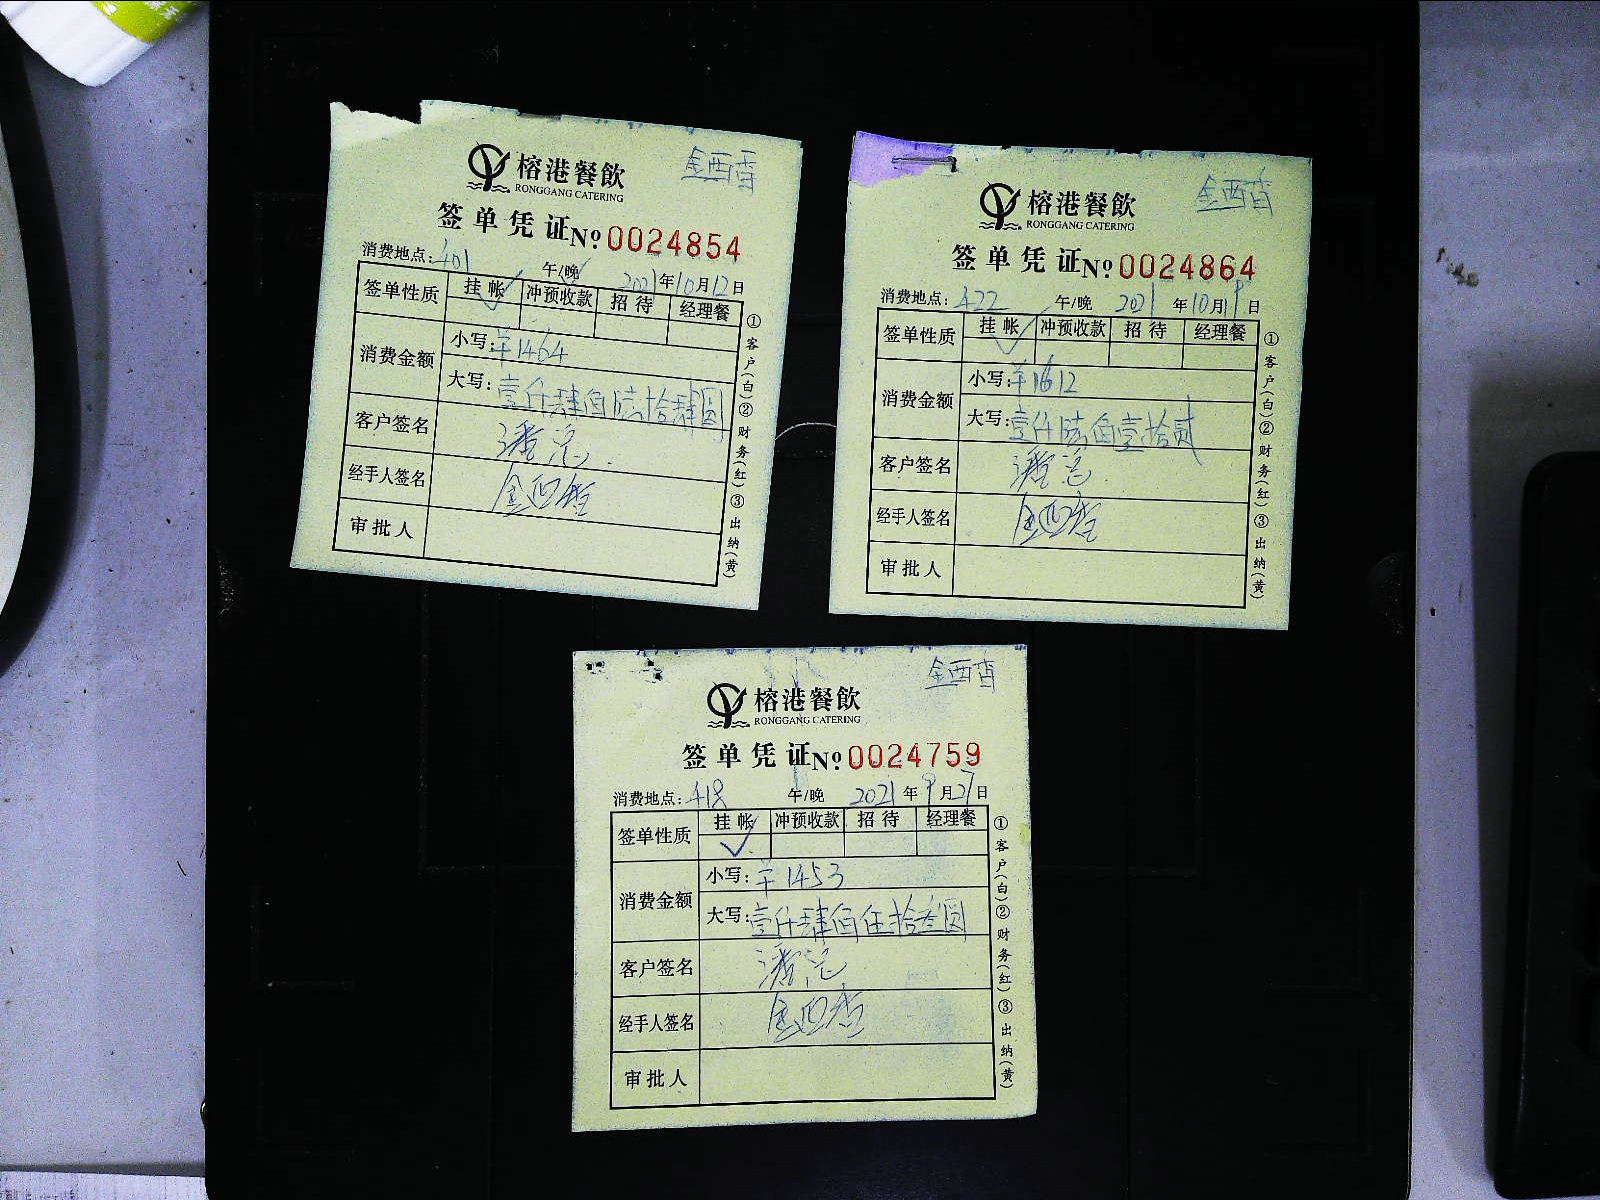 金西香
榕港餐飲
RONGGANG CATERING
签单凭证 Nº 0024854
消费地点: 401 午/晚 2021年10月12日
签单性质 挂帐 冲预收款 招待 经理餐
消费金额 小写: ¥1464
大写: 壹仟肆佰陆拾肆圆
客户签名 潘总
经手人签名 金西香
审批人
①客户(白)②财务(红)③出纳(黄)
金西香
榕港餐飲
RONGGANG CATERING
签单凭证 Nº 0024864
消费地点: 422 午/晚 2021年10月9日
签单性质 挂帐 冲预收款 招待 经理餐
消费金额 小写: ¥1612
大写: 壹仟陆佰壹拾贰
客户签名 潘总
经手人签名 金西香
审批人
①客户(白)②财务(红)③出纳(黄)
金西香
榕港餐飲
RONGGANG CATERING
签单凭证 Nº 0024759
消费地点: 418 午/晚 2021年9月27日
签单性质 挂帐 冲预收款 招待 经理餐
消费金额 小写: ¥1453
大写: 壹仟肆佰伍拾叁圆
客户签名 潘总
经手人签名 金西香
审批人
①客户(白)②财务(红)③出纳(黄)